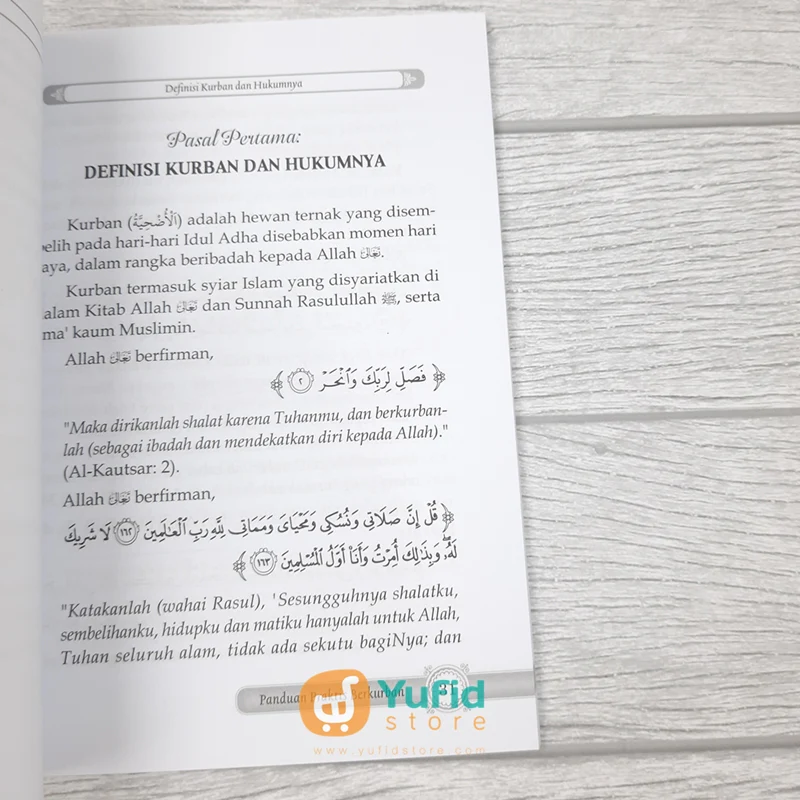 Definisi Kurban dan Hukumnya
Pasal Pertama:
DEFINISI KURBAN DAN HUKUMNYA
Kurban (الْأُضْحِيَّةُ) adalah hewan ternak yang disem-
elih pada hari-hari Idul Adha disebabkan momen hari
aya, dalam rangka beribadah kepada Allah تَعَالَى.
Kurban termasuk syiar Islam yang disyariatkan di
alam Kitab Allah تَعَالَى dan Sunnah Rasulullah ﷺ, serta
ma' kaum Muslimin.
Allah تَعَالَى berfirman,
﴿ فَصَلِّ لِرَبِّكَ وَٱنْحَرْ ٢ ﴾
"Maka dirikanlah shalat karena Tuhanmu, dan berkurban-
lah (sebagai ibadah dan mendekatkan diri kepada Allah)."
(Al-Kautsar: 2).
Allah تَعَالَى berfirman,
﴿ قُلْ إِنَّ صَلَاتِى وَنُسُكِى وَمَحْيَاىَ وَمَمَاتِى لِلَّهِ رَبِّ ٱلْعَٰلَمِينَ ١٦٢ لَا شَرِيكَ
لَهُۥ وَبِذَٰلِكَ أُمِرْتُ وَأَنَا۠ أَوَّلُ ٱلْمُسْلِمِينَ ١٦٣ ﴾
"Katakanlah (wahai Rasul), 'Sesungguhnya shalatku,
sembelihanku, hidupku dan matiku hanyalah untuk Allah,
Tuhan seluruh alam, tidak ada sekutu bagiNya; dan
Panduan Praktis Berkurban
Yufid
store
www.yufidstore.com